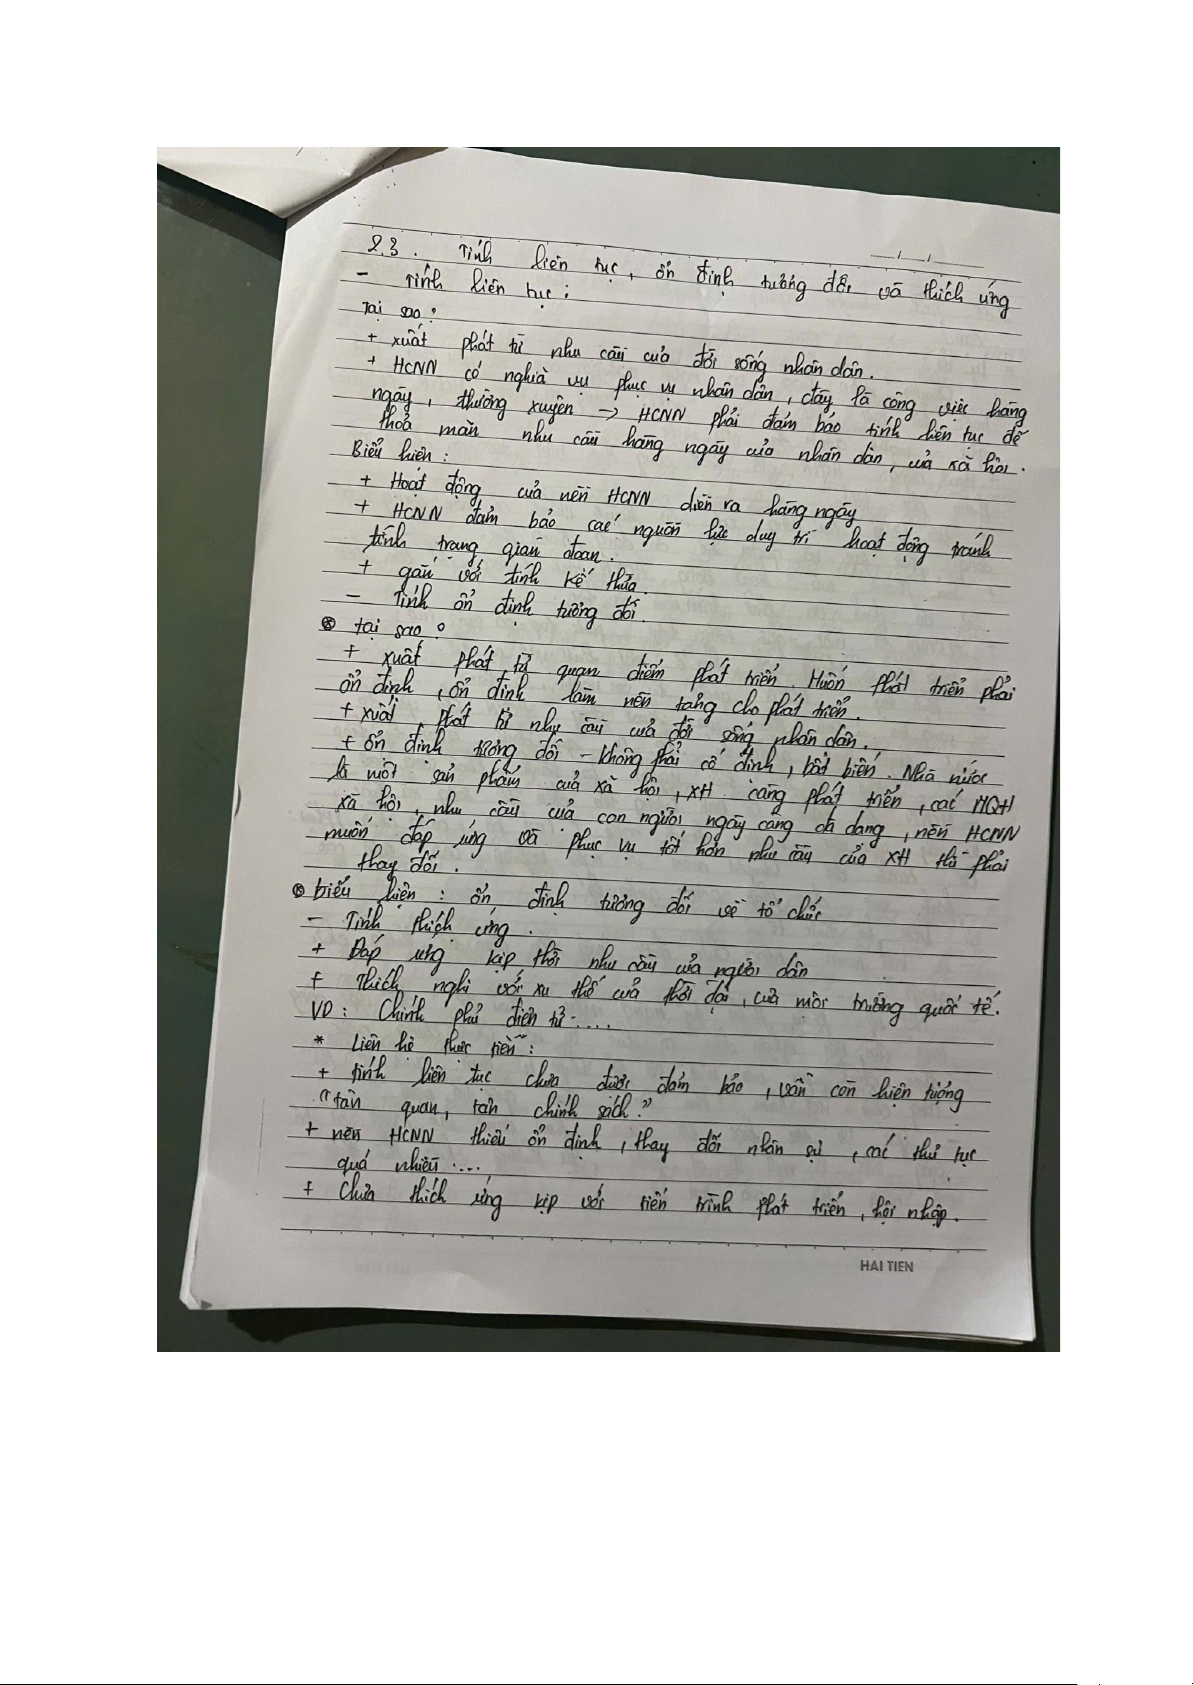 2.3. Tính liên tục, ổn định tương đối và thích ứng
- Tính liên tục:
Tại sao?
+ xuất phát từ nhu cầu của đời sống nhân dân.
+ HCNN có nghĩa vụ phục vụ nhân dân, đây là công việc hàng
ngày, thường xuyên → HCNN phải đảm bảo tính liên tục để
thoả mãn nhu cầu hàng ngày của nhân dân, của xã hội.
Biểu hiện:
+ Hoạt động của nền HCNN diễn ra hàng ngày
+ HCNN đảm bảo các nguồn lực duy trì hoạt động tránh
tình trạng gián đoạn.
+ gắn với tính kế thừa.
- Tính ổn định tương đối.
⊛ tại sao?
+ xuất phát từ quan điểm phát triển. Muốn phát triển phải
ổn định, ổn định làm nền tảng cho phát triển.
+ xuất phát từ nhu cầu của đời sống nhân dân.
+ ổn định tương đối - không phải cố định, bất biến. Nhà nước
là một sản phẩm của xã hội, XH càng phát triển, các MQH
xã hội, nhu cầu của con người ngày càng đa dạng, nền HCNN
muốn đáp ứng và phục vụ tốt hơn nhu cầu của XH thì phải
thay đổi.
⊛ biểu hiện: ổn định tương đối về tổ chức
- Tính thích ứng.
+ Đáp ứng kịp thời nhu cầu của người dân
+ Thích nghi với xu thế của thời đại, của môi trường quốc tế.
VD: Chính phủ điện tử.....
* Liên hệ thực tiễn:
+ tính liên tục chưa được đảm bảo, vẫn còn hiện tượng
"tân quan, tân chính sách."
+ nền HCNN thiếu ổn định, thay đổi nhân sự, các thủ tục
quá nhiều....
+ Chưa thích ứng kịp với tiến trình phát triển, hội nhập.
HAI TIEN